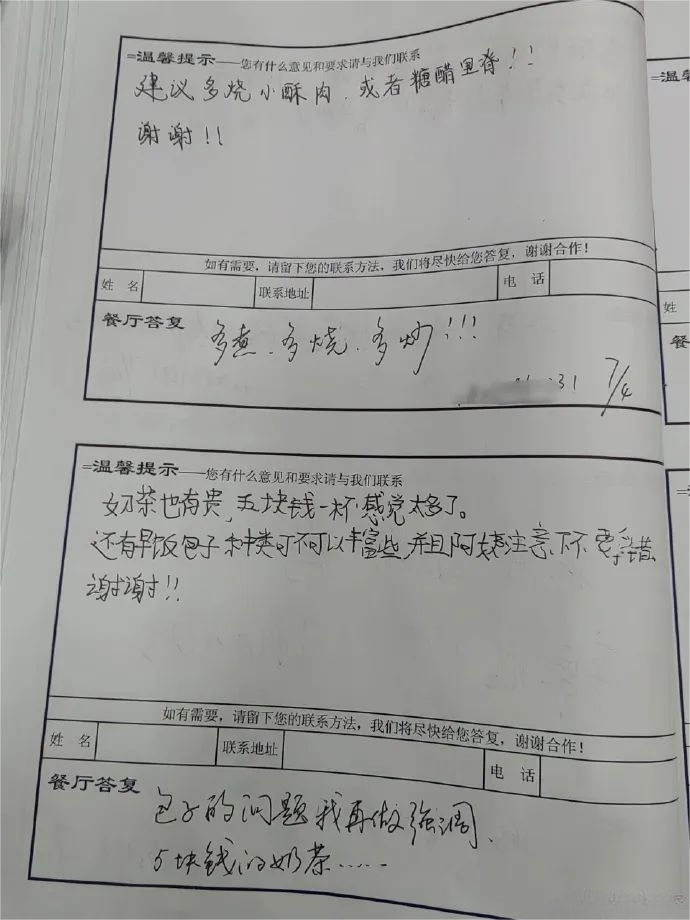 =温馨提示——您有什么意见和要求请与我们联系
建议多烧小酥肉、或者糖醋里脊!!
谢谢!!
如有需要，请留下您的联系方法，我们将尽快给您答复，谢谢合作！
姓 名 联系地址 电 话
餐厅答复
多煮、多烧、多炒!!!
31 7/4
=温馨提示——您有什么意见和要求请与我们联系
奶茶也有贵，五块钱一杯感觉太多了。
还有早饭包子种类可不可以丰富些，并且阿姨注意下不要弄错
谢谢!!
如有需要，请留下您的联系方法，我们将尽快给您答复，谢谢合作！
姓 名 联系地址 电 话
餐厅答复
包子的问题我再做强调、
5块钱的奶茶……
=温
姓
餐
=温
姓
餐